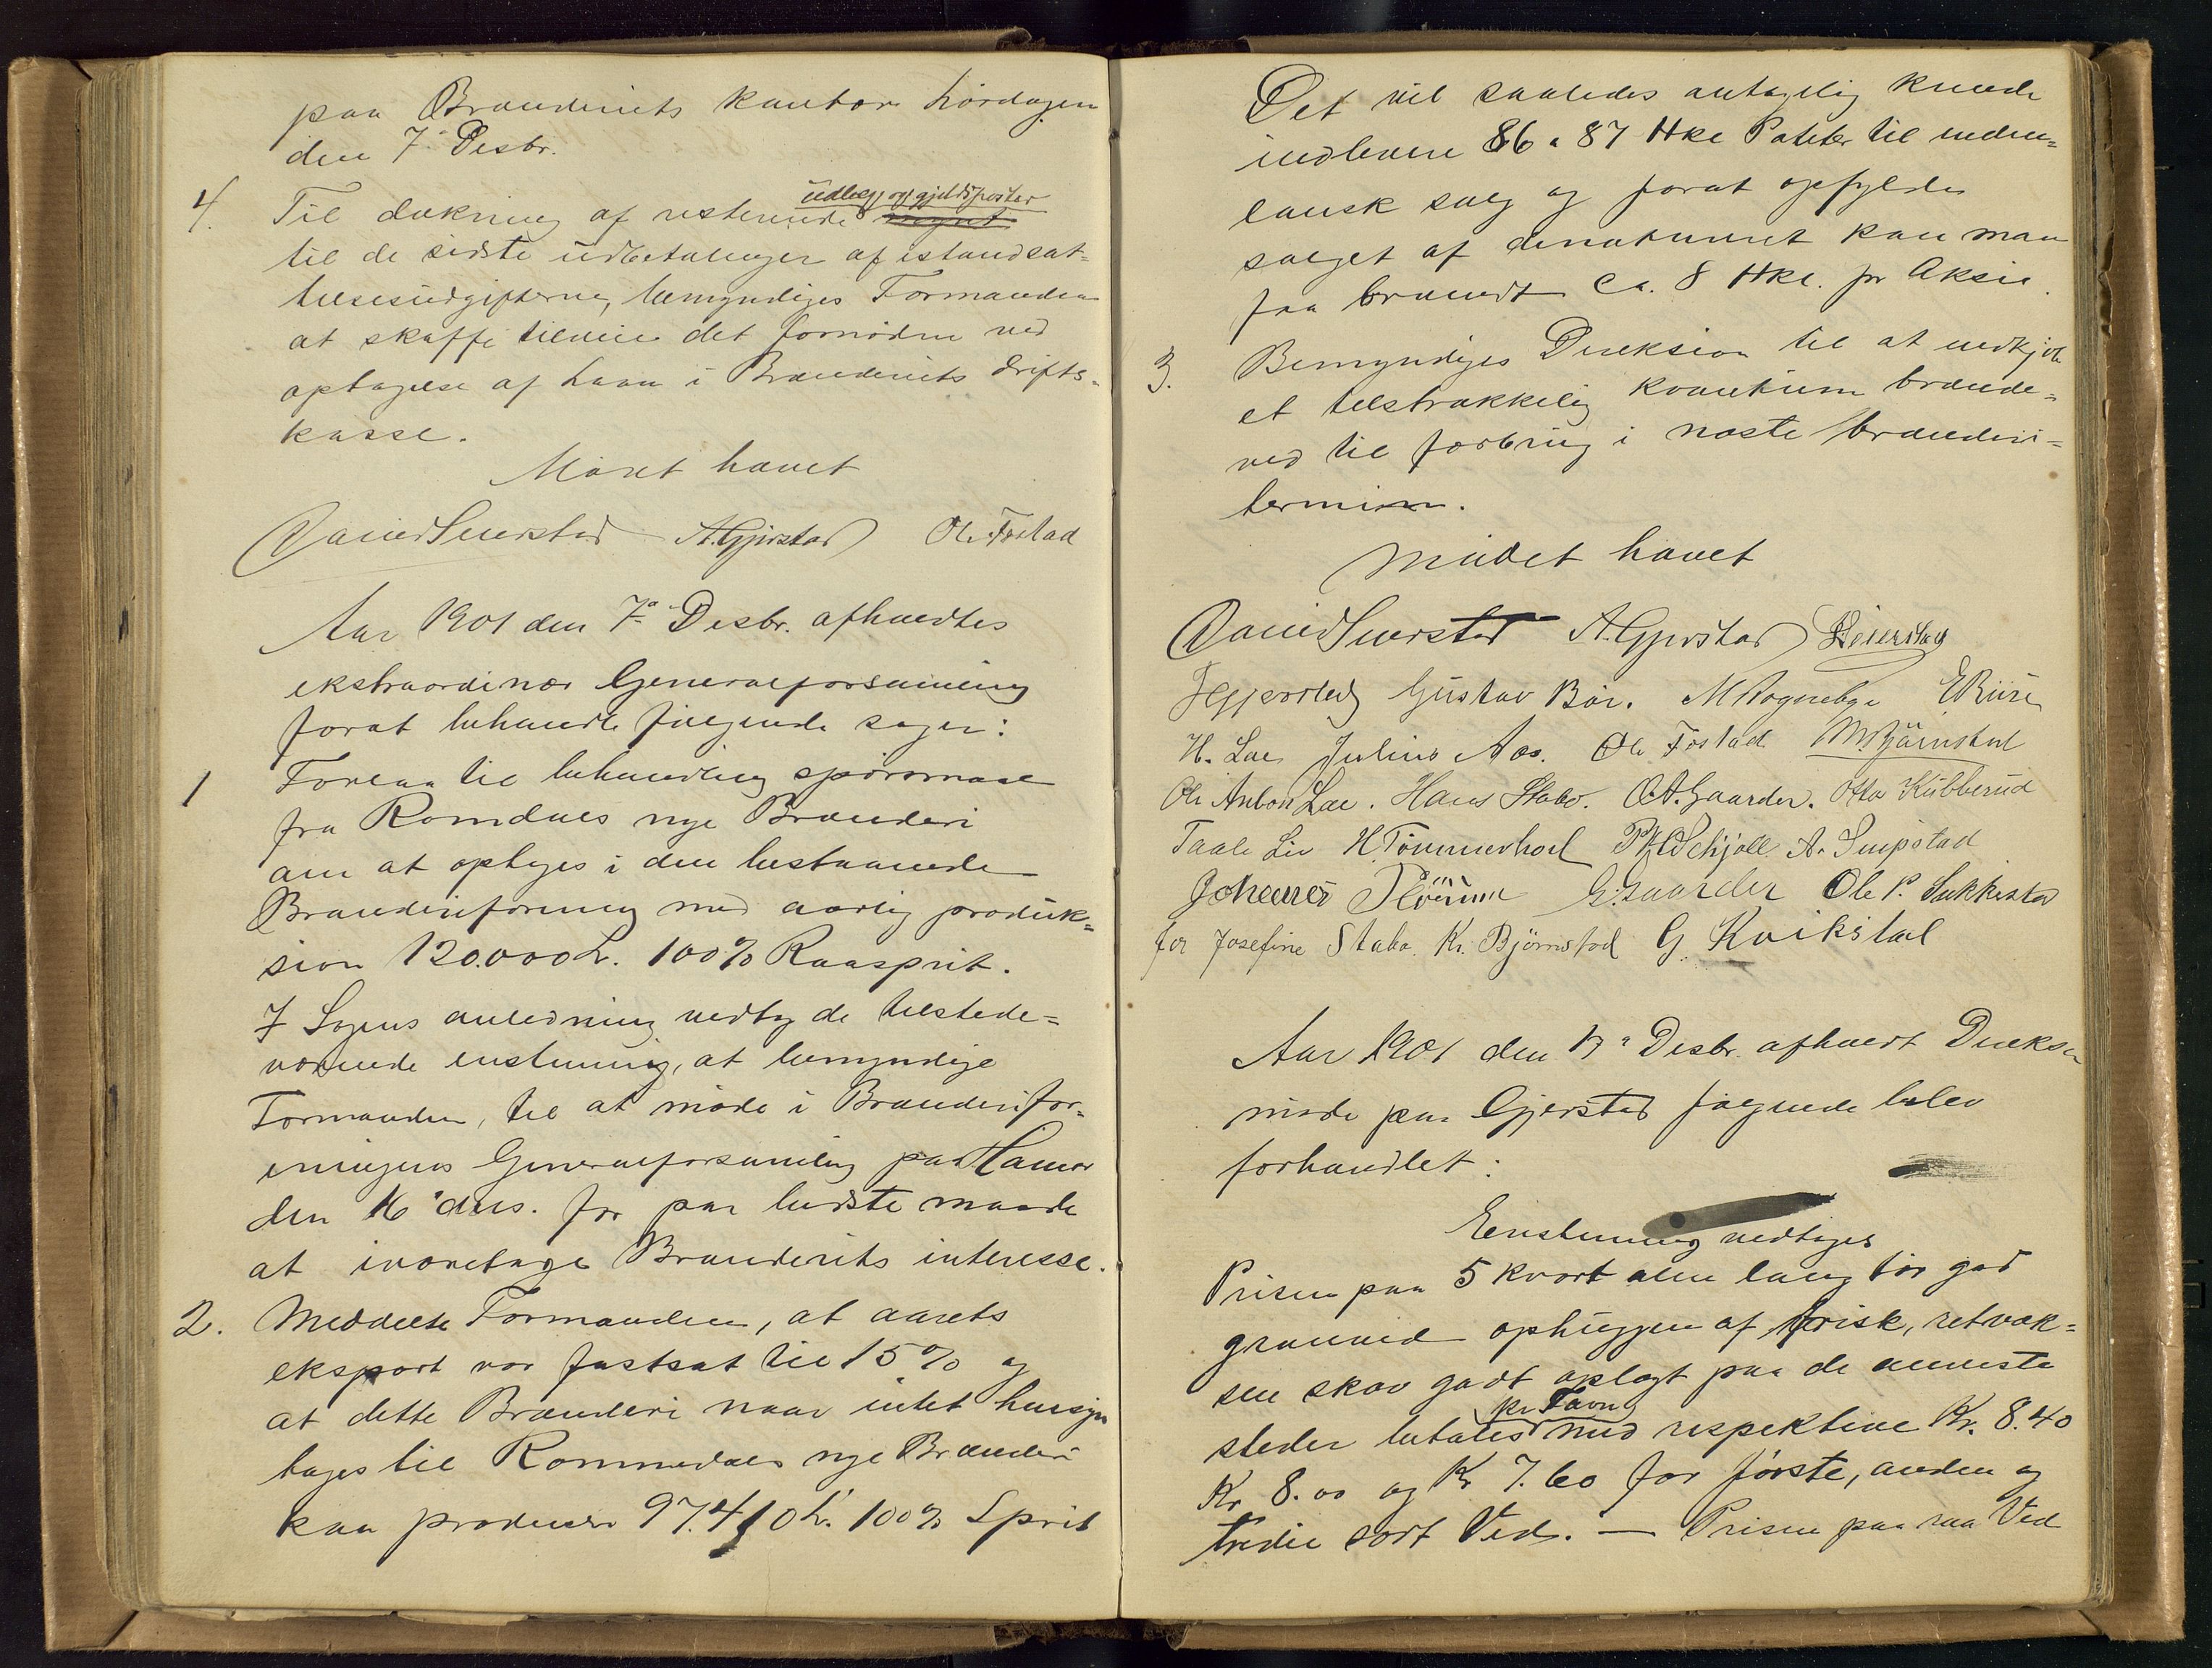 paa Brænderiets kontor Lördagen
den 7de Desbr.
4. Til dækning af resterende udlæg og gjeldsposter
til de sidste udbetalinger af istandsæt=
telsesudgifterne, bemyndiges Formanden
at skaffe tilveie det fornödne ved
optagelse af Laan i Brænderiets drifts=
kasse.
Mödet hævet
David Seierstad A. Gjerstad Ole Fostad
Aar 1901 den 7de Desbr. afholdtes
ekstraordinær Generalforsamling
forat behandle fölgende sager:
1 Forelaa til behandling spörsmaal
fra Romdals nye Brænderi
om at optages i den bestaaende
Brænderiforening med aarlig produk=
sion 120.000 L. 100% Raasprit.
I Sagens anledning vedtog de tilstede=
værende enstemmig, at bemyndige
Formanden, til at möde i Brænderifor=
eningens Generalforsamling paa Hamar
den 16de dns. for paa bedste maade
at ivaretage Brænderiets interesse.
2. Meddelte Formanden, at aarets
eksport var fastsat til 15% og
at dette Brænderi naar intet hensyn
tages til Rommedals nye Brænderi
kan producere 97.410 L. 100% Sprit
Det vil saaledes antagelig kunde
indlevere 86 a 87 Hkl Poteter til inden=
landsk salg og forat opfylde
salget af denatureret kan man
faa brændt ca. 8 Hkl. pr Aksie.
3. Bemyndiges Direksion til at indkjöbe
et tilstrækkelig kvantum brænde=
ved til forbrug i næste brænderi=
termin.
Mödet hævet
David Seierstad A. Gjerstad Seierstad
Gustav Bör. M Rognebye E Riise
H. Lae Julius Aas. Ole Fostad M. Bjärnstad
Ole Anton Lae. Hans Stabo. O.A. Gaarder. Otto Kubberud
Taale Lie H Tömmerhoel Schjöll. A. Imp̈stad
Johannes G. Gaarder Ole P. Sukkestad
for Josefine Stabo. Kr. Björnstad G. Kvikstad
Aar 1901 den 17de Desbr. afholdt Direksion
möde paa Gjerstad fölgende blev
forhandlet:
Eenstemmig vedtages
Prisen paa 5 kvart alen lang tör god
granved ophuggen af frisk, retvok=
sen skov godt oplagt paa de anviste
steder betales pr Favn med respektive Kr. 8.40
Kr 8.00 og Kr 7.60 for förste, anden og
tredie sort Ved. — Prisen paa raa Ved